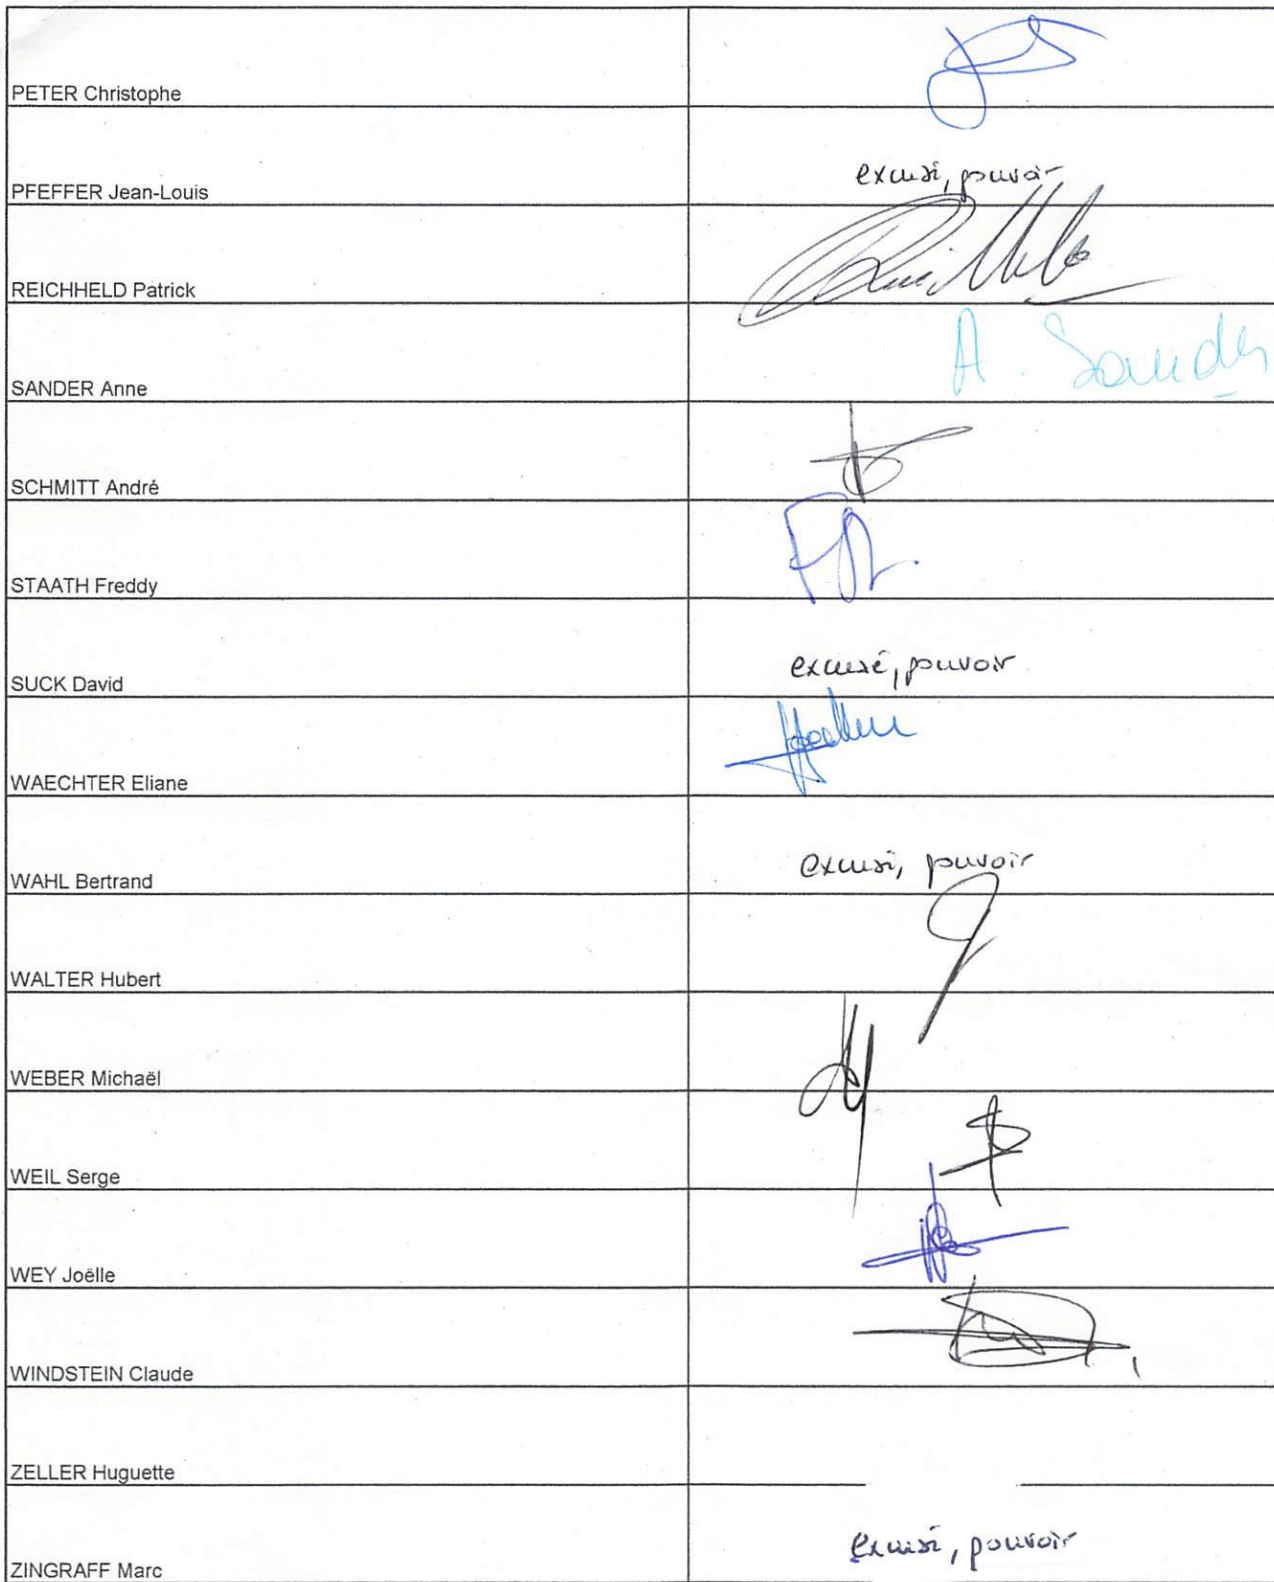 PETER Christophe
PFEFFER Jean-Louis excusé, pouvoir
REICHHELD Patrick
SANDER Anne A. Sander
SCHMITT André
STAATH Freddy
SUCK David excusé, pouvoir
WAECHTER Eliane
WAHL Bertrand excusé, pouvoir
WALTER Hubert
WEBER Michaël
WEIL Serge
WEY Joëlle
WINDSTEIN Claude
ZELLER Huguette
ZINGRAFF Marc excusé, pouvoir